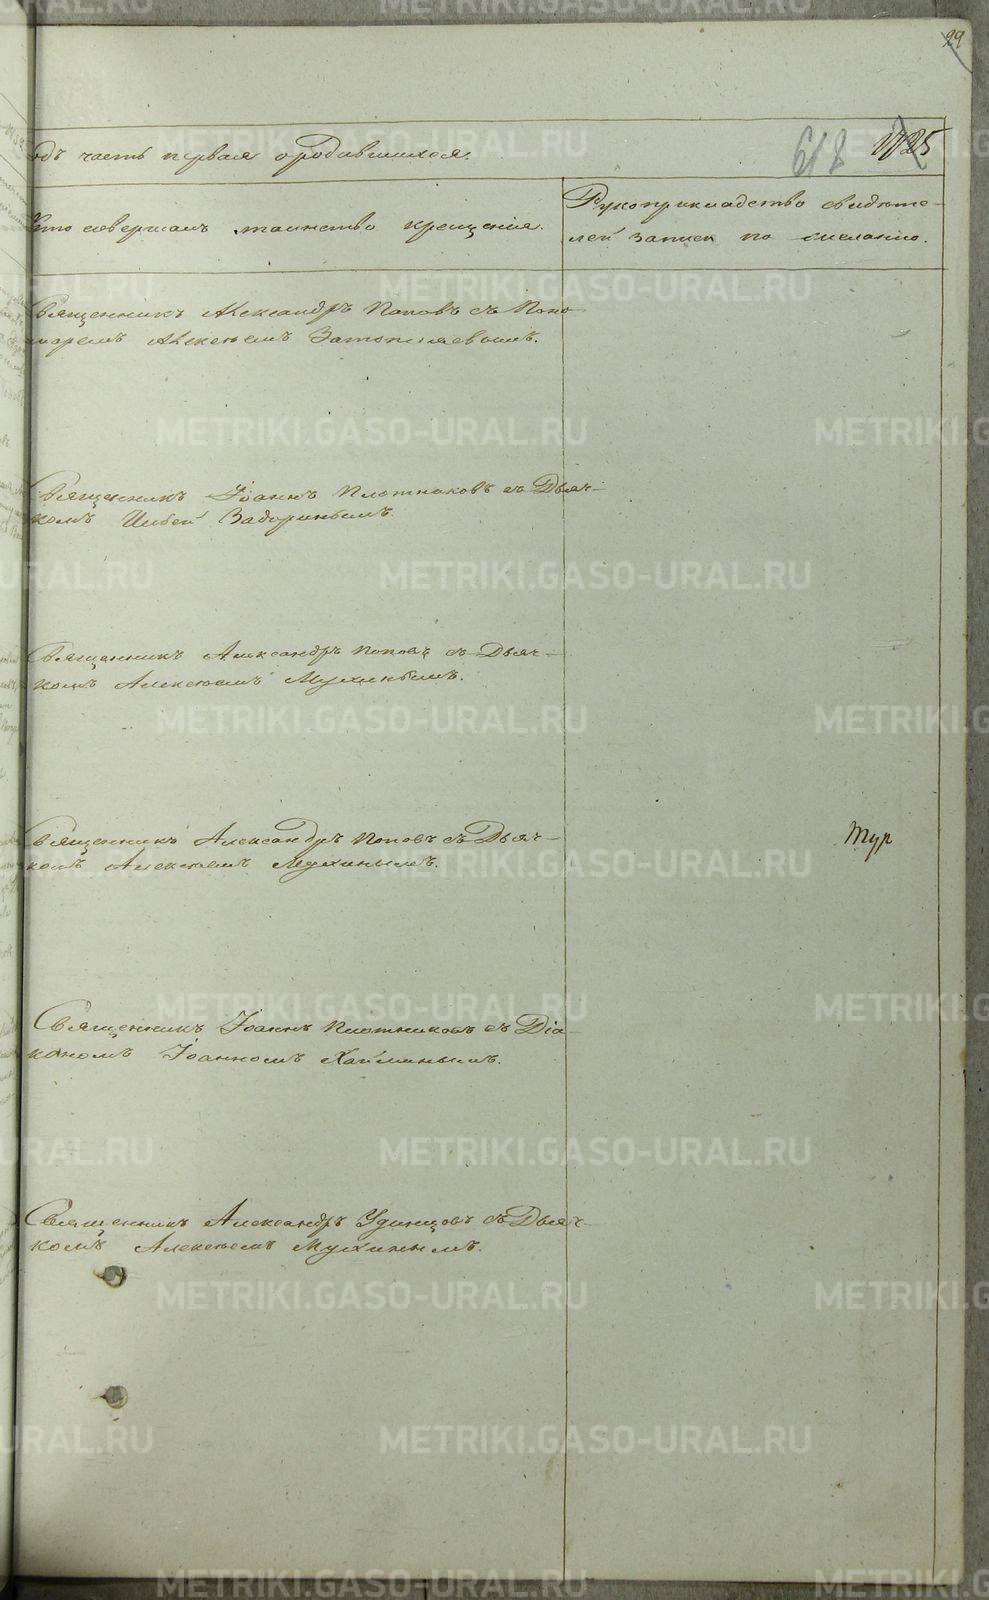 29
одъ часть первая о родившихся.
618
1725
Кто совершалъ таинство крещенія.
Рукоприкладство свидѣте-
лей записи по желанію.
Священникъ Александръ Поповъ съ Поно
маремъ Алексѣемъ Затопляевымъ.
Священникъ Іоаннъ Плотниковъ съ Дьяч-
комъ Задоринымъ.
Священникъ Александръ Поповъ съ Дьяч-
комъ Алексѣемъ Мухинымъ.
Священникъ Александръ Поповъ съ Дьяч-
комъ Алексѣемъ Мухинымъ.
Тур
Священникъ Іоаннъ Плотниковъ съ Діа-
кономъ Іоанномъ Хаминымъ.
Священникъ Александръ Удинцовъ съ Дьяч-
комъ Алексѣемъ Мухинымъ.
METRIKI.GASO-URAL.RU